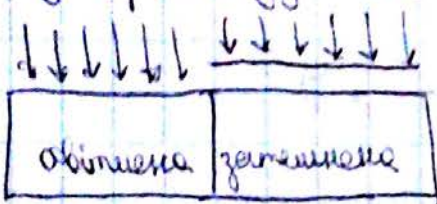 освітлена затемнена